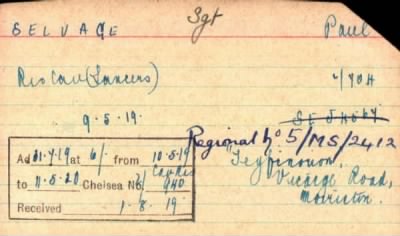 SELVAGE Sgt Paul
Res Cav (Lancers)
9.5.19.
Regional No 5/MS/2412
Ad 31.7.19 at 6/- from 10.5.19
to 11.5.20 Chelsea No.
Vicarage Road,
Received 1-8-19 Morriston.